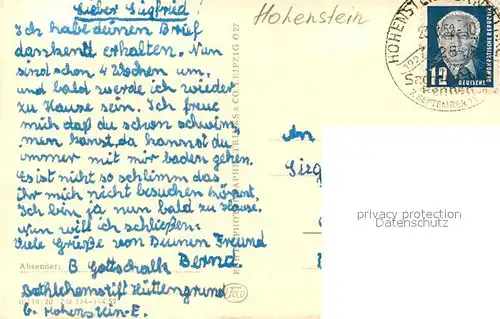 Lieber Siegfried!
Ich habe deinen Brief
dankent erhalten. Nun
sind schon 4 Wochen um,
und bald werde ich wieder
zu Hause sein. Ich freue
mich daß du schon schwim-
men kanst, da kannst du
immer mit mir baden gehen.
Es ist nicht so schlimm das
ihr mich nicht besuchen könnt.
Ich bin ja nun bald zu Hause.
Nun will ich schließen:
Viele Grüße von Deinen Freund
Bernd.
Absender: B. Gottschalk
Bethlehemstift Hüttengrund
b. Hohenstein-E.
Hohenstein
An
HOHENSTEIN
7. SEPTEMBER
12
DEUTSCHE
privacy protection
Datenschutz